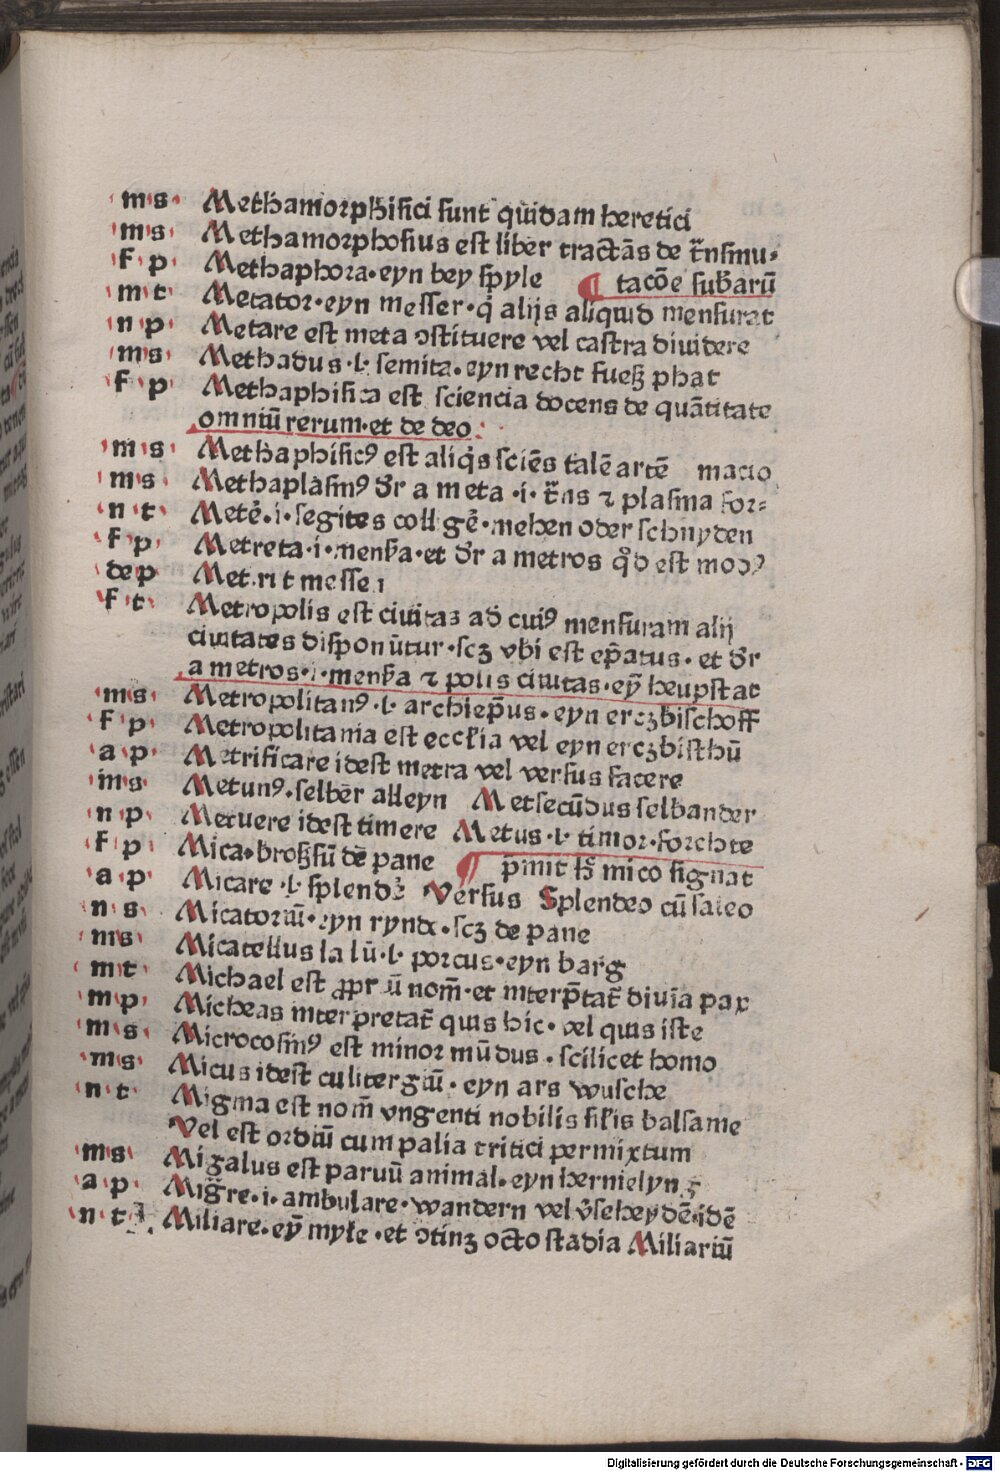 m s Methamorphisici sunt quidam heretici
m s Methamorphosius est liber tractās de trͣnsmu-
f p Methaphora·eyn bey spyle ¶ tacōe subarū
m t Metator·eyn messer·q̇ alijs aliquid mensurat
n p Metare est meta ꝯstituere vel castra diuidere
m s Methadus·l·semita·eyn recht fueß phat
f p Methaphisica est sciencia docens de quātitate
omniū rerum·et de deo
m s Methaphisicꝰ est aliq̇s sciēs talē artē
m s Methaplasmꝰ dr̄ a meta·i·trͣns ⁊ plasma for-
n t Meterͤ·i·segites colligerͤ·mehen oder schnyden
f p Metreta·i·mensͬa·et dr̄ a metros qd̕ est
de p
f t Metropolis est ciuitas ad cuiꝰ mensuram alij
ciuitates disponūtur·scꝫ vbi est ep̄atus·et dr̄
a metros·i·mensͬa ⁊ polis ciuitas·eyn̄ heupstat
m s Metropolitanꝰ·l·archiep̄us·eyn erczbischoff
f p Metropolitania est eccl̕ia vel eyn erczbisthū
a p Metrificare idest metra vel versus facere
m s Metunꝰ·selber alleyn Metsecūdus selbander
n p Metuere idest timere Metus·l·timor·forchte
f p Mica·broßsū de pane ¶ p̄mit sꝫ mico signat
a p Micare·l·splendeͬ Versus Splendeo cū saleo
n s Micatoriū·eyn rynde·scꝫ de pane
m s Micatellus la lū·l·porcus·eyn barg
m t Michael est ꝓpriū nom̄·et interp̄tat̄ diuīa pax
m p Micheas interpretat̄ quis hic·vel quis iste
m s Microcosmꝰ est minor mūdus·scilicet homo
m s Micus idest culitergiū·eyn ars wusche
n t Migma est nom̄ vngenti nobilis sil̕is balsame
Vel est ordiū cum palia tritici permixtum
m s Migalus est paruū animal·eyn hermelyng
a p Migrͣre·i·ambulare·wandern vel v̕seheydē·idē
n t Miliare·eyn̄ myle·et ꝯtinꝫ octo stadia Miliariū
Digitalisierung gefördert durch die Deutsche Forschungsgemeinschaft - DFG